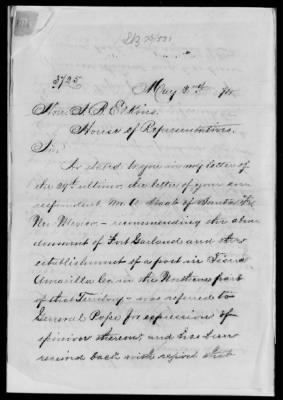 3725
May 3rd
Hon. S. B. Elkins
House of Representatives.
Sir,
As stated to you in my letter of
the 29th ultimo, the letter of your cor-
respondent Mr. A. Staab of Santa Fé
New Mexico - recommending the aban-
donment of Fort Garland and the
establishment of a post in Tierra
Amarilla Co. in the Northern part
of that Territory - was referred to
General Pope for expression of
opinion thereon, and has been
received back with report that